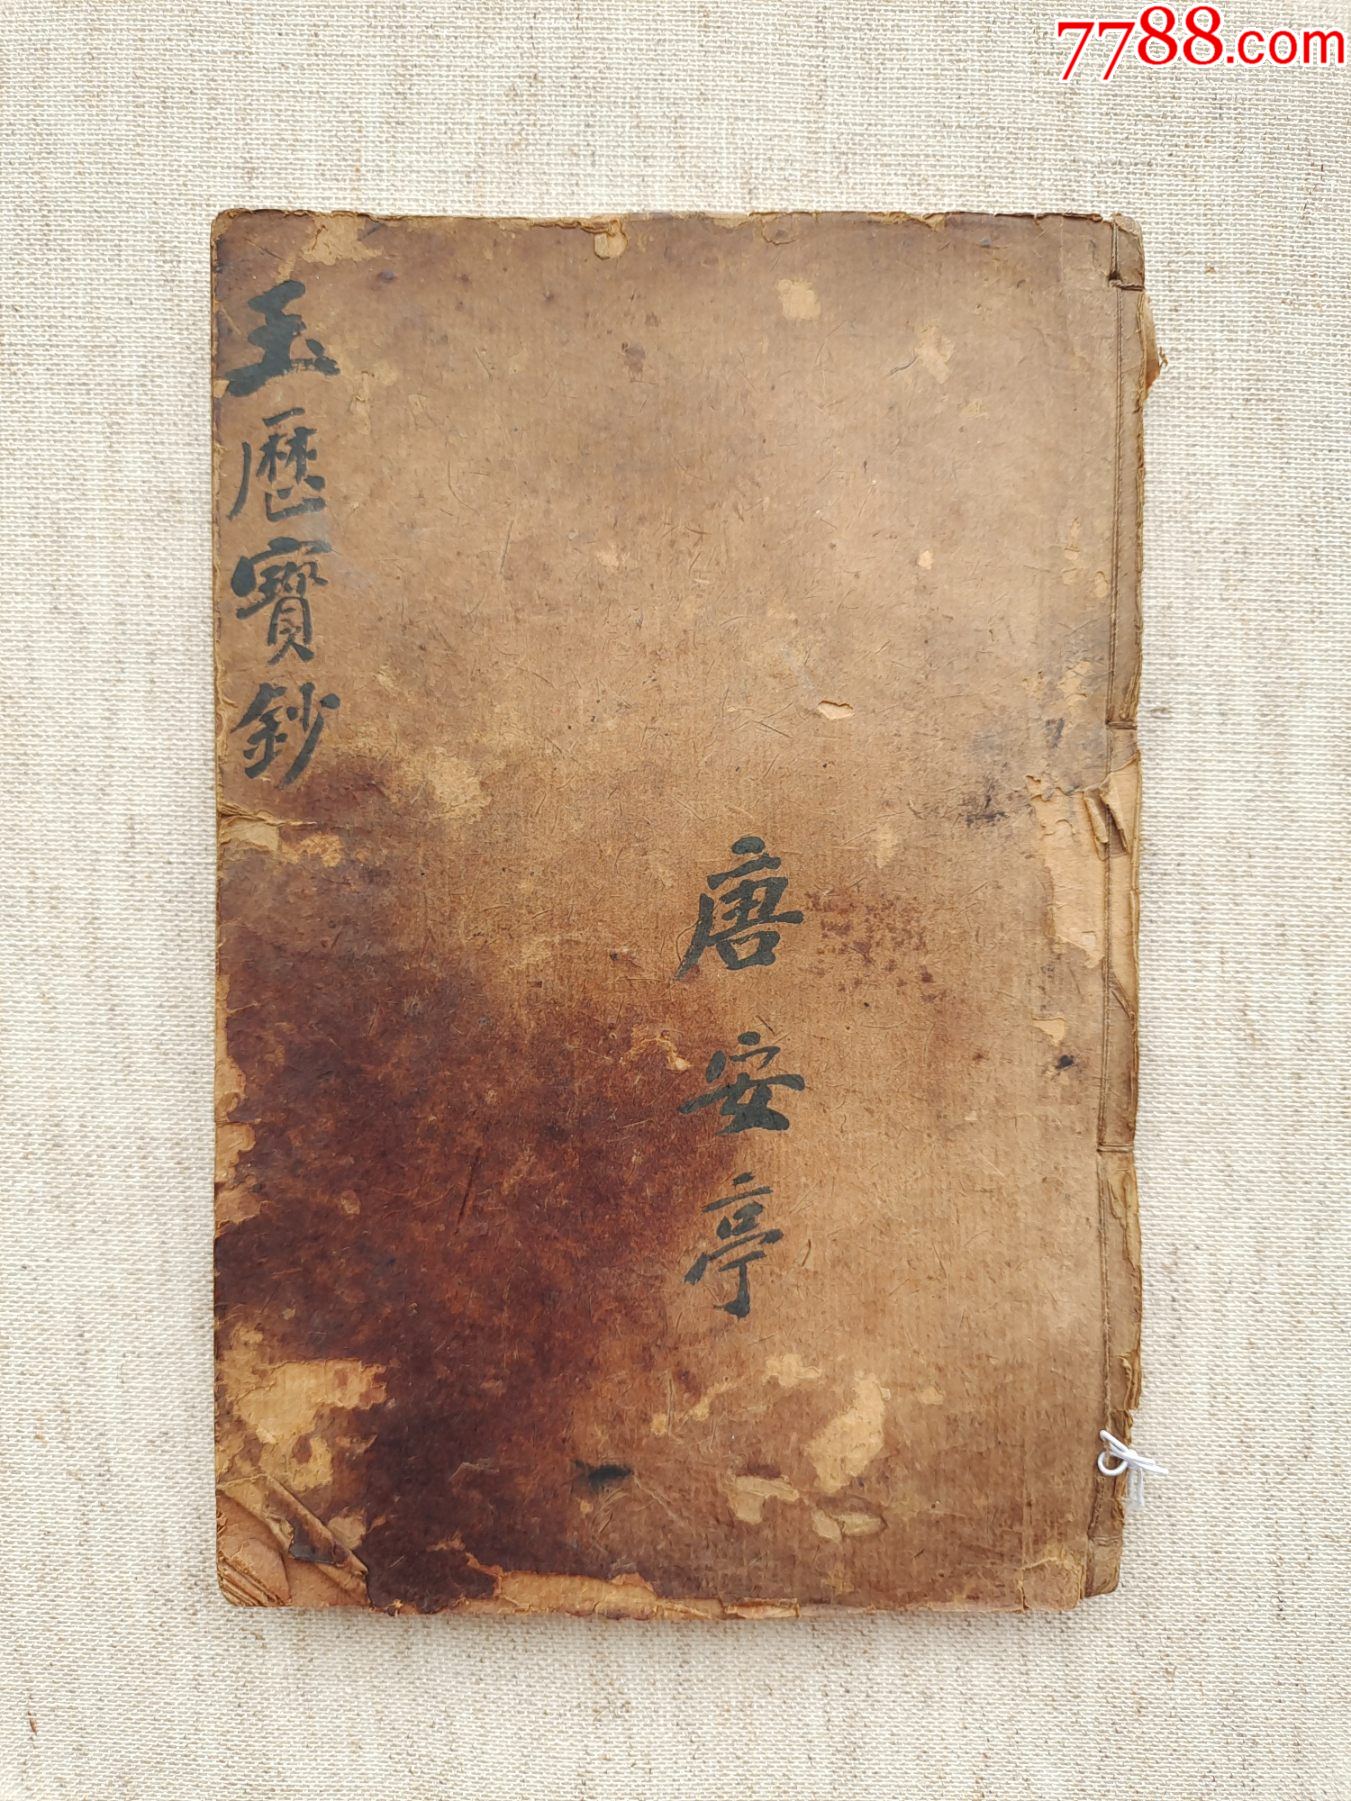 7788.com
玉歷寶鈔
唐安亭